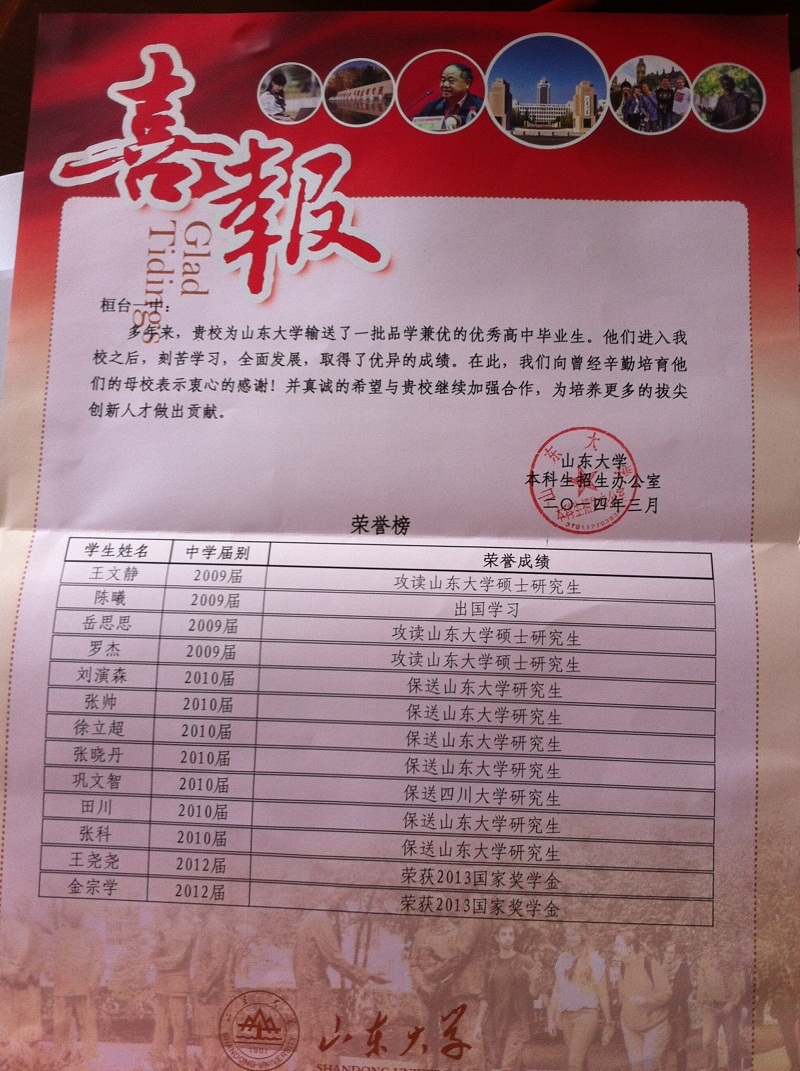 喜報
Glad
Tidings
桓台一中：
多年来，贵校为山东大学输送了一批品学兼优的优秀高中毕业生。他们进入我
校之后，刻苦学习，全面发展，取得了优异的成绩。在此，我们向曾经辛勤培育他
们的母校表示衷心的感谢！并真诚的希望与贵校继续加强合作，为培养更多的拔尖
创新人才做出贡献。
山东大学
本科生招生办公室
二〇一四年三月
荣誉榜
学生姓名 中学届别 荣誉成绩
王文静 2009届 攻读山东大学硕士研究生
陈曦 2009届 出国学习
岳思思 2009届 攻读山东大学硕士研究生
罗杰 2009届 攻读山东大学硕士研究生
刘演森 2010届 保送山东大学研究生
张帅 2010届 保送山东大学研究生
徐立超 2010届 保送山东大学研究生
张晓丹 2010届 保送山东大学研究生
巩文智 2010届 保送四川大学研究生
田川 2010届 保送山东大学研究生
张科 2010届 保送山东大学研究生
王尧尧 2012届 荣获2013国家奖学金
金宗学 2012届 荣获2013国家奖学金
山东大学